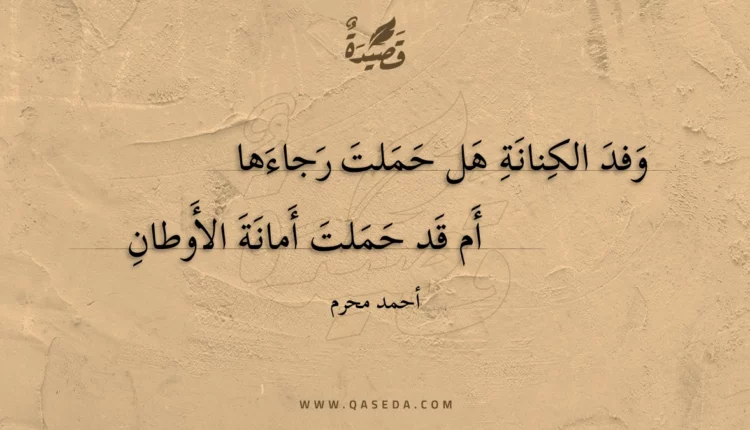 قَصِيدَةٌ
وَفدَ الكِنانَةِ هَل حَمَلتَ رَجاءَها
أَم قَد حَمَلتَ أَمانَةَ الأَوطانِ
أحمد محرم
WWW.QASEDA.COM